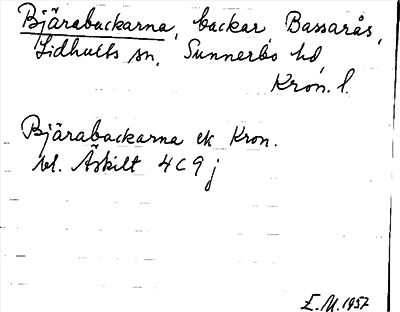 Bjärabackarna, backar, Bassarås,
Lidhults sn, Sunnerbo hd,
Kron. l.
Bjärabackarna ek Kron.
bl. Äskilt 4C9j
E.M.1957